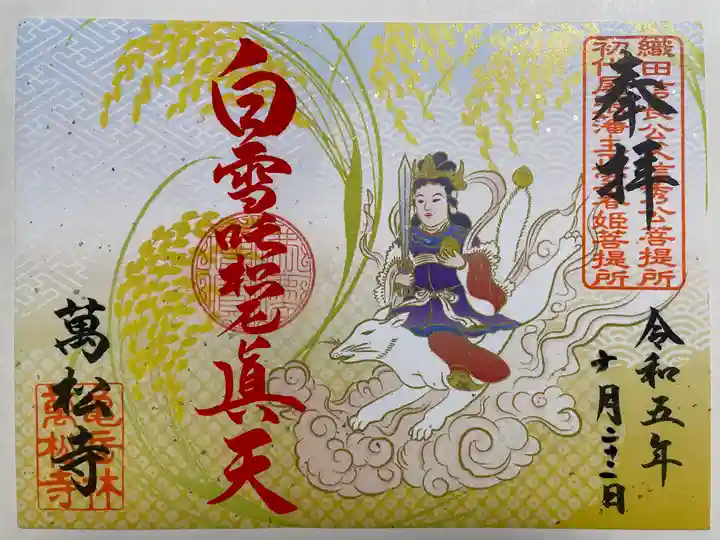 奉拝
織田信長公父信秀公菩提所
初代尾張藩主正室春姫菩提所
令和五年
十月二十二日
白雪吒枳尼眞天
萬松寺
龜岳林
萬松寺